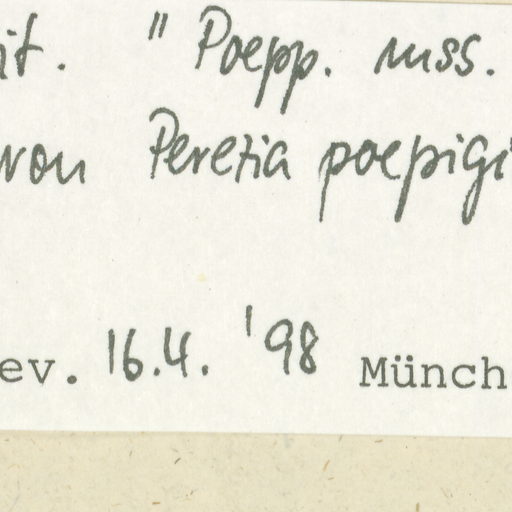 it. " Poepp. mss.
von Perezia poepigi
ev. 16.4. '98 Münch